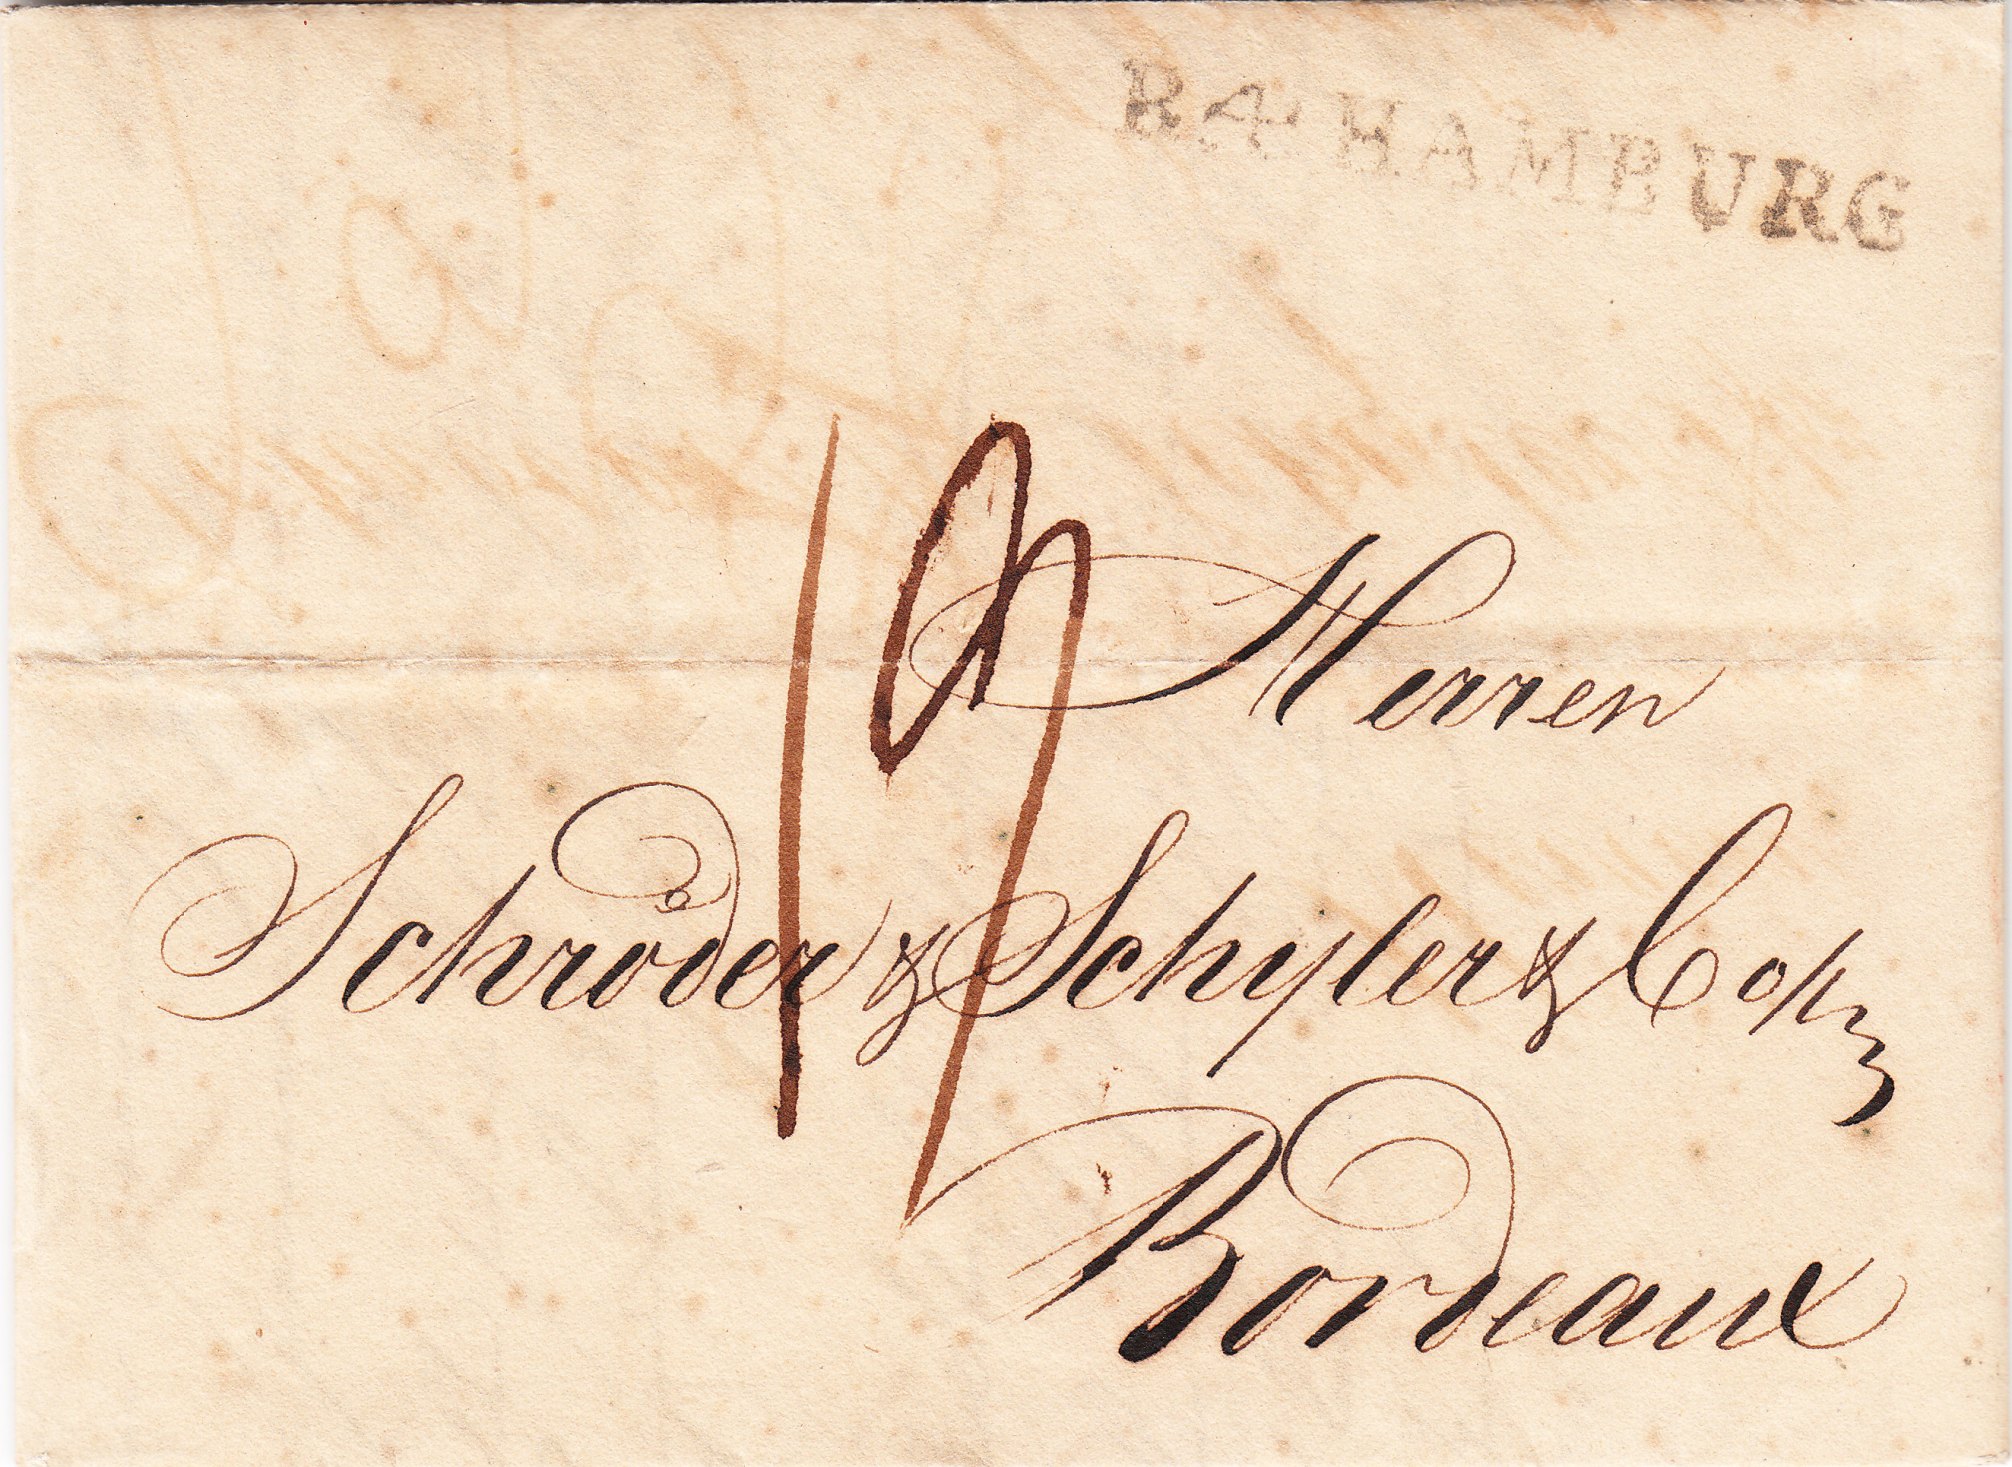 R4 HAMBURG
19
Herren
Schröder & Schyler & Co
Bordeaux